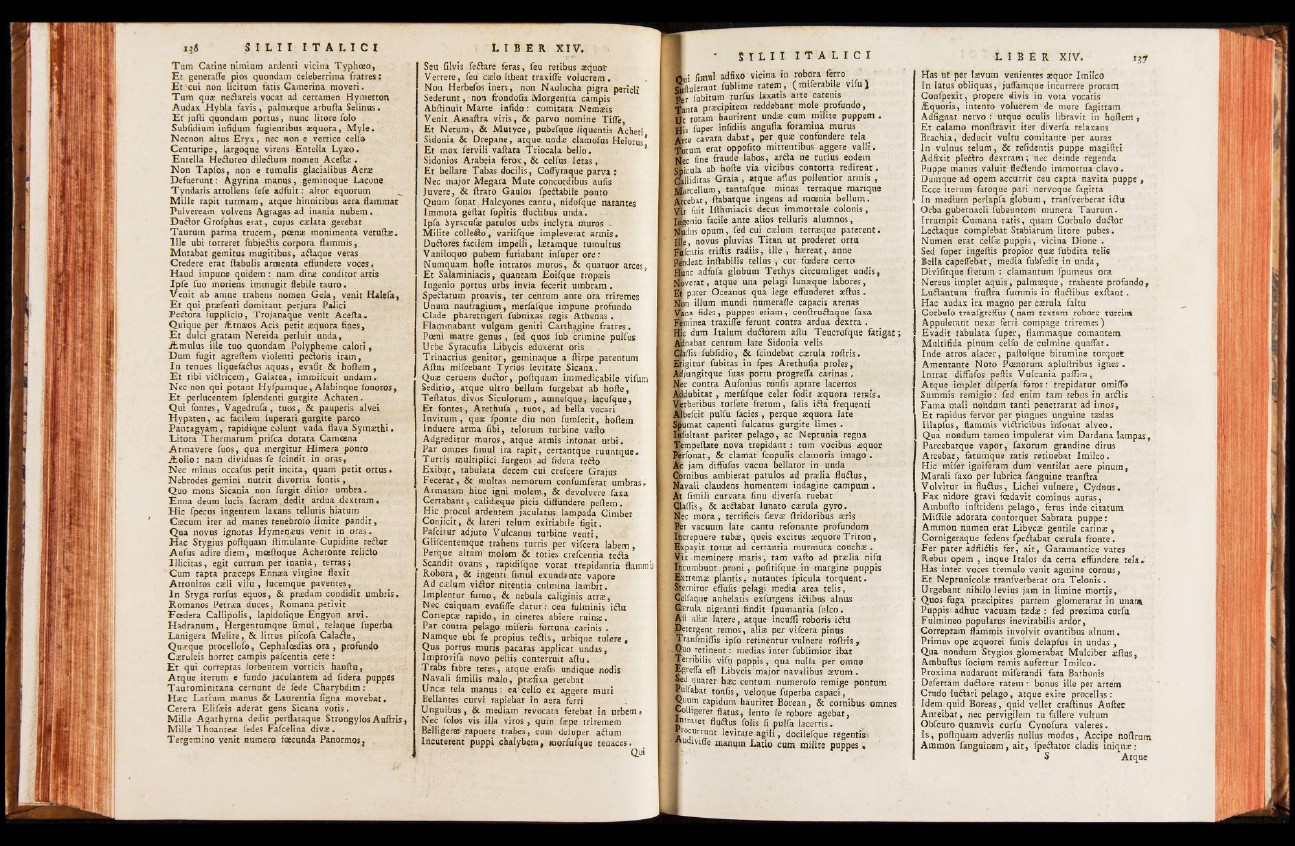 136 SILII ITALICI
Tum Catine nimium ardenti vicina Typhœo,
Et generasse pios quondam celeberrima fratres:
Et cui non licitum fatis Camerina moveri.
Tum quæ nectareis vocat ad certamen Hymetton
Audax Hybla favis, palmæque arbusta Selinus.
Et justi quondam portus, nunc litore solo
Subsidium infidum fugientibus æquora, Myle.
Necnon altus Eryx, nec non e vertice celso
Centuripe, largoque virens Entella Lyæo.
Entella Hectoreo dilectum nomen Acestæ.
Non Tapsos, non e tumulis glacialibus Acræ
Defuerunt: Agyrina manus, geminoque Lacone
Tyndaris attollens sese adfuit: altor equorum
Mille rapit turmam, atque hinnitibus aera flammat
Pulveream volvens Agragas ad inania nubem.
Ductor Grosphus erat, cujus cælata gerebat
Taurum parma trucem, pœnæ monimenta vetustæ.
Ille ubi torreret subjectis corpora flammis,
Mutabat gemitus mugitibus, actaque veras
Credere erat stabulis armenta effundere voces.
Haud impune quidem: nam diræ conditor artis
Ipse suo moriens immugit flebile tauro.
Venit ab amne trahens nomen Gela, venit Halesa,
Et qui præsenti domitant perjura Palici
Pectora supplicio, Trojanaque venit Acesta.
Quique per Ætnæos Acis petit æquora fines,
Et dulci gratam Nereida perluit unda,
Æmulus ille tuo quondam Polypheme calori,
Dum fugit agrestem violenti pectoris iram,
In tenues liquefactus aquas, evasit & hostem,
Et tibi victricem, Galatea, immiscuit undam.
Nec non qui potant Hypsamque, Alabinque sonoros,
Et perlucentem splendenti gurgite Achaten.
Qui fontes, Vagedrusa, tuos, & pauperis alvei
Hypaten, ac facilem superari gurgite parco
Pantagyam, rapidique colunt vada flava Symæthi.
Litora Thermarum prisca dotata Camœna
Armavere suos, qua mergitur Himera ponto
Æolio: nam dividuas se scindit in oras,
Nec minus occasus petit incita, quam petit ortus.
Nebrodes gemini nutrit divortia fontis,
Quo mons Sicania non surgit ditior umbra.
Enna deum lucis sacram dedit ardua dextram.
Hic specus ingentem laxans telluris hiatum
Cæcum iter ad manes tenebroso limite pandit,
Qua novus ignotas Hymenæus venit in oras.
Hac Stygius postquam stimulante Cupidine rector
Ausus adire diem, mœstoque Acheronte relicto
Illicitas, egit currum per inania, terras;
Cum rapta præceps Ennæa virgine flexit
Attonitos cæli visu, lucemque paventes,
In Styga rursus equos, & prædam condidit umbris.
Romanos Petræa duces, Romana petivit
Fœdera Callipolis, lapidosique Engyon arvi.
Hadranum, Hergentumque simul, telaque superba
Lanigera Melite, & littus piscosa Calacte,
Quæque procelloso, Cephalœdias ora, profundo
Cæruleis horret campis pascentia cete:
Et qui correptas sorbentem vorticis haustu,
Atque iterum e fundo jaculantem ad sidera puppes
Taurominitana cernunt de sede Charybdim:
Hæc Latium manus & Laurentia signa movebat.
Cetera Elisæis aderat gens Sicana votis.
Mille Agathyrna dedit perflataque Strongylos Austris,
Mille Thoanteæ sedes Fascelina divæ.
Tergemino venit numero fœcunda Panormos,
LIBER XIV.
Seu silvis sectare feras, seu retibus æquor
Verrere, seu cælo libeat traxisse volucrem.
Non Herbesos iners, non Naulocha pigra pericli
Sederunt, non frondosis Morgentia campis
Abstinuit Marte infido: comitata Nemæis
Venit Amastra viris, & parvo nomine Tisse,
Et Netum, & Mutyce, pubesque liquentis Acheti,
Sidonia & Drepane, atque undæ clamosus Helorus,
Et mox servili vastata Triocala bello.
Sidonios Arabeia ferox, & celsus Ietas,
Et bellare Tabas docilis, Cossyraque parva:
Nec major Megara Mute concordibus ausis
Juvere, & strato Gaulos spectabile ponto
Quum sonat Halcyones cantu, nidosque natantes
Immota gestat sopitis fluctibus unda.
Ipsa Syracusæ patulos urbs inclyta muros
Milite collecto, variisque impleverat armis.
Ductores facilem impelli, lætamque tumultus
Vaniloquo pubem furiabant insuper ore:
Numquam hoste intratos muros, & quatuor arces,
Et Salaminiacis, quantam Eoisque tropæis
Ingenio portus urbs invia fecerit umbram.
Spectatum proavis, ter centum ante ora triremes
Unum naufragium, mersasque impune profundo
Clade pharetrigeri subnixas regis Athenas.
Flammabant vulgum geniti Carthagine fratres.
Pœni matre genus, sed quos sub crimine pulsus
Urbe Syracusia Libycis eduxerat oris
Trinacrius genitor, geminaque a stirpe parentum
Astus miscebant Tyrios levitate Sicana.
Quæ cernens ductor, postquam immedicabile visum
Seditio, atque ultro bellum surgebat ab hoste,
Testatus divos Siculorum, amnesque, lacusque,
Et fontes, Arethusa, tuos, ad bella vocari
Invitum, quæ sponte diu non sumserit, hostem
Induere arma sibi, telorum turbine vasto
Adgreditur muros, atque armis intonat urbi.
Par omnes simul ira rapit, certantque ruuntque.
Turris multiplici surgens ad sidera tecto
Exibat, tabulata decem cui crescere Grajus
Fecerat, & multas nemorum consumserat umbras.
Armatam hinc igni molem, & devolvere saxa
Certabant, calidæque picis diffundere pestem.
Hic procul ardentem jaculatus lampada Cimber
Conjicit, & lateri telum exitiabile figit.
Pascitur adjuto Vulcanus turbine venti,
Gliscentemque trahens turris per viscera labem,
Perque altam molem & toties crescentia tecta
Scandit ovans, rapidisque vorat trepidantia flammis
Robora, & ingenti simul exundante vapore
Ad cælum victor nitentia culmina lambit.
Implentur fumo, & nebula caliginis atræ,
Nec cuiquam evasisse datur: ceu fulminis ictu
Correptæ rapido, in cineres abiere ruinæ.
Par contra pelago miseris fortuna carinis.
Namque ubi se propius tectis, urbique tulere,
Qua portus muris pacatas applicat undas,
Improvisa novo pestis conterruit astu.
Trabs fabre teres, atque erasis undique nodis
Navali similis malo, præfixa gerebat
Uncæ tela manus: ea celso ex aggere muri
Bellantes curvi rapiebat in aera ferri
Unguibus, & mediam revocata ferebat in urbem.
Nec solos vis illa viros, quin sæpe triremem
Belligeræ rapuere trabes, cum desuper actum
Incuterent puppi chalybem, morsusque tenaces.
Qui
SILII ITALICI
Qui simul adfixo vicina in robora ferro
Sustulerant sublime ratem, (miserabile visu)
Per subitum rursus laxatis arte catenis
Tanta præcipitem reddebant mole profundo,
Ut totam haurirent undæ cum milite puppem.
His super insidiis angusta foramina murus
Arte cavata dabat, per quæ confundere tela
Tutum erat opposito mittentibus aggere valli.
Nec sine fraude labos, arcta ne rursus eodem
Spicula ab hoste via vicibus contorta redirent.
Calliditas Graia, atque astus pollentior armis,
Marcellum, tantasque minas terraque marique
Arcebat, stabatque ingens ad mœnia bellum.
Vir fuit Isthmiacis decus immortale colonis,
Ingenio facile ante alios telluris alumnos,
Nudus opum, sed cui cælum terræque paterent.
Ille, novus pluvias Titan ut proderet ortu
Fuscatis tristis radiis, ille, hæreat, anne
Pendeat instabilis tellus, cur fœdere certo
Hunc adfusa globum Tethys circumliget undis,
Noverat, atque una pelagi lunæque labores,
Et pater Oceanus qua lege effunderet æstus.
Non illum mundi numerasse capacis arenas
Vana fides, puppes etiam, constructaque saxa
Feminea traxisse ferunt contra ardua dextra.
Hic dum Italum ductorem astu Teucrosque fatigat;
Adnabat centum late Sidonia velis
Classis subsidio, & scindebat cærula rostris.
Erigitur subitas in spes Arethusia proles,
Adjungitque suas portu progressa carinas.
Nec contra Ausonius tonsis aptare lacertos
Addubitat, mersisque celer fodit æquora remis.
Verberibus torsere fretum, salis icta frequenti
Albescit pulsu facies, perque æquora late
Spumat canenti sulcatus gurgite limes.
Insultant pariter pelago, ac Neptunia regna
Tempestate nova trepidant: tum vocibus æquor
Personat, & clamat scopulis clamoris imago.
Ac jam diffusus vacua bellator in unda
Cornibus ambierat patulos ad prælia fluctus,
Navali claudens humentem indagine campum.
At simili curvata sinu diversa ruebat
Classis, & arctabat lunato cærula gyro.
Nec mora, terrificis sævæ stridoribus æris
Per vacuum late cantu resonante profundum
Increpuere tubæ, queis excitus æquore Triton,
Expavit tortæ ad certantia murmura conchæ.
Vix meminere maris, tam vasto ad prælia nisu
Incumbunt proni, positisque in margine puppis
Extremæ plantis, nutantes spicula torquent.
Sternitur effusis pelagi media area telis,
Celsaque anhelatis exsurgens ictibus alnus
Cærula nigranti findit spumantia sulco.
Ast aliæ latere, atque incussi roboris ictu
Detergent remos, aliæ per viscera pinus
Transmissis ipso retinentur vulnere rostris,
Quo retinent: medias inter sublimior ibat
Terribilis visu puppis, qua nulla per omne
Egressa est Libycis major navalibus ævum.
Sed quater hæc centum numeroso remige pontum
Pulsabat tonsis, veloque superba capaci,
Quum rapidum hauriret Borean, & cornibus omnes
Colligeret flatus, lento se robore agebat,
Intraret fluctus solis si pulsa lacertis.
Procurrunt levitate agili, docilesque regentis
Audivisse manum Latio cum milite puppes,
LIBER XIV. 137
Has ut per lævum venientes æquor Imilco
In latus obliquas, jussamque incurrere proram
Conspexit, propere divis in vota vocatis
Æquoris, intento volucrem de more sagittam
Adsignat nervo: utque oculis libravit in hostem,
Et calamo monstravit iter diversa relaxans
Brachia, deducit vultu comitante per auras
In vulnus telum, & residentis puppe magistri
Adfixit plectro dextram; nec deinde regenda
Puppe manus valuit flectendo immortua clavo.
Dumque ad opem accurrit ceu capta navita puppe,
Ecce iterum fatoque pari nervoque sagitta
In medium perlapsa globum, transverberat ictu
Orba gubernacli subeuntem munera Taurum.
Irrumpit Cumana ratis, quam Corbulo ductor
Lectaque complebat Stabiarum litore pubes.
Numen erat celsæ puppis, vicina Dione.
Sed super ingestis propior quæ subdita telis
Bella capessebat, media subsedit in unda,
Divisitque fretum: clamantum spumeus ora
Nereus implet aquis, palmæque, trahente profundo,
Luctantum frustra summis in fluctibus exstant.
Hac audax ira magno per cærula saltu
Corbulo transgressus (nam textam robore turrim
Appulerant nexæ ferri compage triremes)
Evadit tabulata super, flammaque comantem
Multifida pinum celso de culmine quassat.
Inde atros alacer, pastosque bitumine torquet
Amentante Noto Pœnorum aplustribus ignes.
Intrat diffusos pestis Vulcania passim.
Atque implet dispersa foros: trepidatur omisso
Summis remigio: sed enim tam rebus in arctis
Fama mali nondum tanti penetrarat ad imos,
Et rapidus fervor per pingues unguine tædas
Illapsus, flammis victricibus insonat alveo.
Qua nondum tamen impulerat vim Dardana lampas,
Parcebatque vapor, saxorum grandine dirus
Arcebat, fatumque ratis retinebat Imilco.
Hic miser igniferam dum ventilat aere pinum,
Marali saxo per lubrica sanguine transtra
Volvitur in fluctus, Lichei vulnere, Cydnus.
Fax nidore gravi fœdavit cominus auras,
Ambusto instridens pelago, ferus inde citatum
Missile adorata contorquet Sabrata puppe:
Ammon numen erat Libycæ gentile carinæ,
Cornigeraque sedens spectabat cærula fronte.
Fer pater adflictis fer, ait, Garamantice vates
Rebus opem, inque Italos da certa effundere tela.
Has inter voces tremulo venit agmine cornus,
Et Neptunicolæ transverberat ora Telonis.
Urgebant nihilo levius jam in limine mortis,
Quos fuga præcipites partem glomerarat in unam
Puppis adhuc vacuam tædæ: sed proxima cursu
Fulmineo populatus inevitabilis ardor,
Correptam flammis involvit ovantibus alnum.
Primus ope æquorei funis delapsus in undas,
Qua nondum Stygios glomerabat Mulciber æstus,
Ambustus socium remis aufertur Imilco.
Proxima nudarunt miserandi fata Bathonis
Desertam ductore ratem: bonus ille per artem
Crudo luctari pelago, atque exire procellas:
Idem quid Boreas, quid vellet crastinus Auster
Anteibat, nec pervigilem tu fallere vultum
Obscuro quamvis cursu Cynosura valeres.
Is, postquam adversis nullus modus, Accipe nostrum
Ammon sanguinem, ait, spectator cladis iniquæ:
S Atque